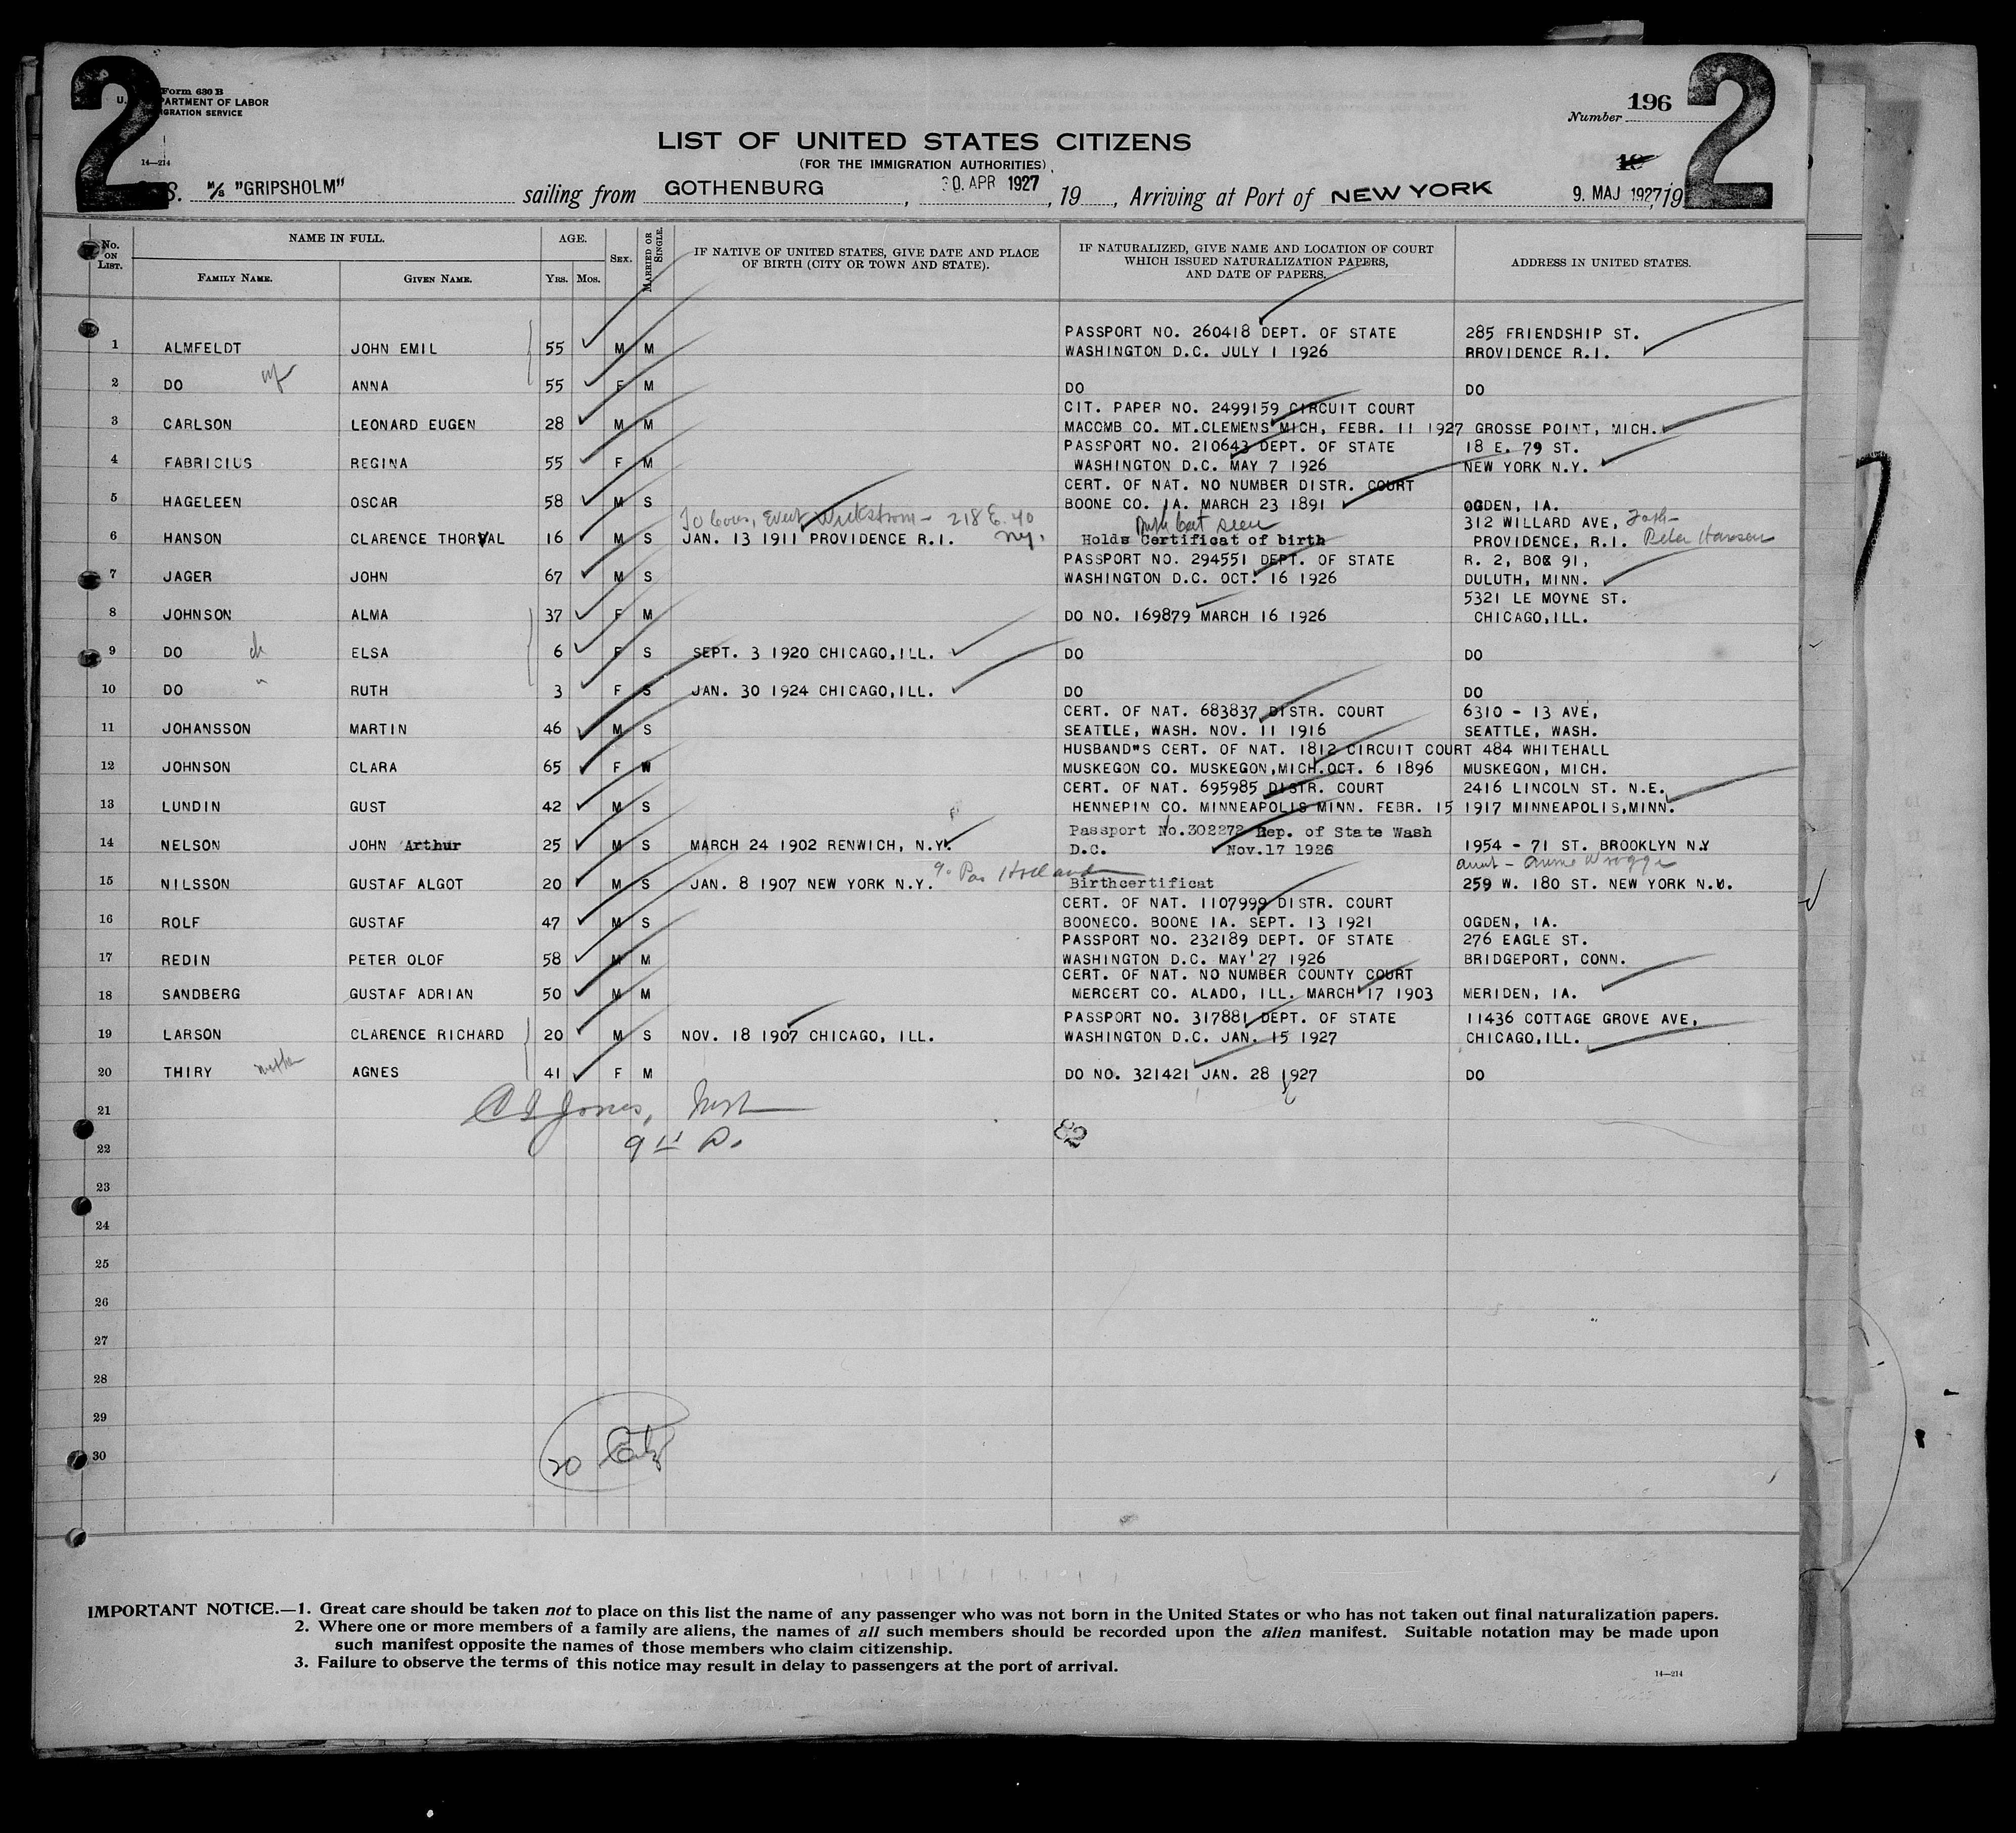 2 2
Form 630 B
U. PARTMENT OF LABOR
IGRATION SERVICE
14—214
Number 196
LIST OF UNITED STATES CITIZENS
(FOR THE IMMIGRATION AUTHORITIES)
S. M/S "GRIPSHOLM" sailing from GOTHENBURG, 30. APR 1927, 19, Arriving at Port of NEW YORK 9. MAJ 1927, 19
No. ON LIST. NAME IN FULL. FAMILY NAME. GIVEN NAME. AGE. YRS. MOS. SEX. MARRIED OR SINGLE. IF NATIVE OF UNITED STATES, GIVE DATE AND PLACE OF BIRTH (CITY OR TOWN AND STATE). IF NATURALIZED, GIVE NAME AND LOCATION OF COURT WHICH ISSUED NATURALIZATION PAPERS, AND DATE OF PAPERS. ADDRESS IN UNITED STATES.
PASSPORT NO. 260418 DEPT. OF STATE 285 FRIENDSHIP ST.
1 ALMFELDT JOHN EMIL 55 M M WASHINGTON D.C. JULY 1 1926 RROVIDENCE R.I.
2 DO wf ANNA 55 F M DO DO
CIT. PAPER NO. 2499159 CIRCUIT COURT
3 CARLSON LEONARD EUGEN 28 M M MACOMB CO. MT.CLEMENS MICH, FEBR. 11 1927 GROSSE POINT, MICH.
PASSPORT NO. 210643 DEPT. OF STATE 18 E. 79 ST.
4 FABRICIUS REGINA 55 F M WASHINGTON D.C. MAY 7 1926 NEW YORK N.Y.
CERT. OF NAT. NO NUMBER DISTR. COURT
5 HAGELEEN OSCAR 58 M S BOONE CO. IA. MARCH 23 1891 OGDEN, IA.
To cous, Evert Wickstrom - 218 E. 40 N.Y. Birth cert seen 312 WILLARD AVE, Fath-
6 HANSON CLARENCE THORVAL 16 M S JAN. 13 1911 PROVIDENCE R.I. Holds Certificat of birth PROVIDENCE, R.I. Peter Hanson
PASSPORT NO. 294551 DEPT. OF STATE R. 2, BOX 91,
7 JAGER JOHN 67 M S WASHINGTON D.C. OCT. 16 1926 DULUTH, MINN.
5321 LE MOYNE ST.
8 JOHNSON ALMA 37 F M DO NO. 169879 MARCH 16 1926 CHICAGO,ILL.
9 DO ch ELSA 6 F S SEPT. 3 1920 CHICAGO,ILL. DO DO
10 DO " RUTH 3 F S JAN. 30 1924 CHICAGO,ILL. DO DO
CERT. OF NAT. 683837 DISTR. COURT 6310 - 13 AVE,
11 JOHANSSON MARTIN 46 M S SEATTLE, WASH. NOV. 11 1916 SEATTLE, WASH.
HUSBAND"S CERT. OF NAT. 1812 CIRCUIT COURT 484 WHITEHALL
12 JOHNSON CLARA 65 F W MUSKEGON CO. MUSKEGON,MICH.OCT. 6 1896 MUSKEGON, MICH.
CERT. OF NAT. 695985 DISTR. COURT 2416 LINCOLN ST. N.E.
13 LUNDIN GUST 42 M S HENNEPIN CO. MINNEAPOLIS MINN. FEBR. 15 1917 MINNEAPOLIS,MINN.
Passport No.302272 Dep. of State Wash
14 NELSON JOHN Arthur 25 M S MARCH 24 1902 RENWICH, N.Y. D.C. Nov.17 1926 1954 - 71 ST. BROOKLYN N.Y
aunt - Anna
15 NILSSON GUSTAF ALGOT 20 M S JAN. 8 1907 NEW YORK N.Y. Birthcertificat 259 W. 180 ST. NEW YORK N.Y.
CERT. OF NAT. 1107999 DISTR. COURT
16 ROLF GUSTAF 47 M S BOONECO. BOONE IA. SEPT. 13 1921 OGDEN, IA.
PASSPORT NO. 232189 DEPT. OF STATE 276 EAGLE ST.
17 REDIN PETER OLOF 58 M M WASHINGTON D.C. MAY 27 1926 BRIDGEPORT, CONN.
CERT. OF NAT. NO NUMBER COUNTY COURT
18 SANDBERG GUSTAF ADRIAN 50 M M MERCERT CO. ALADO, ILL. MARCH 17 1903 MERIDEN, IA.
PASSPORT NO. 317881 DEPT. OF STATE 11436 COTTAGE GROVE AVE,
19 LARSON CLARENCE RICHARD 20 M S NOV. 18 1907 CHICAGO, ILL. WASHINGTON D.C. JAN. 15 1927 CHICAGO,ILL.
20 THIRY mother AGNES 41 F M DO NO. 321421 JAN. 28 1927 DO
21 Jones,
82
22
23
24
25
26
27
28
29
30
20 Citz
IMPORTANT NOTICE.—1. Great care should be taken not to place on this list the name of any passenger who was not born in the United States or who has not taken out final naturalization papers.
2. Where one or more members of a family are aliens, the names of all such members should be recorded upon the alien manifest. Suitable notation may be made upon
such manifest opposite the names of those members who claim citizenship.
3. Failure to observe the terms of this notice may result in delay to passengers at the port of arrival.
14—214